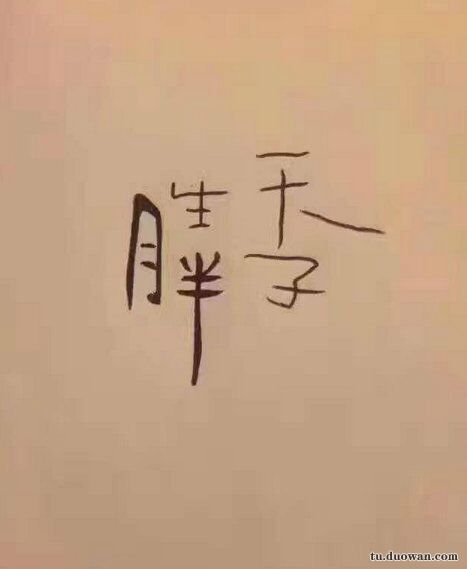 天生
胖子
tu.duowan.com